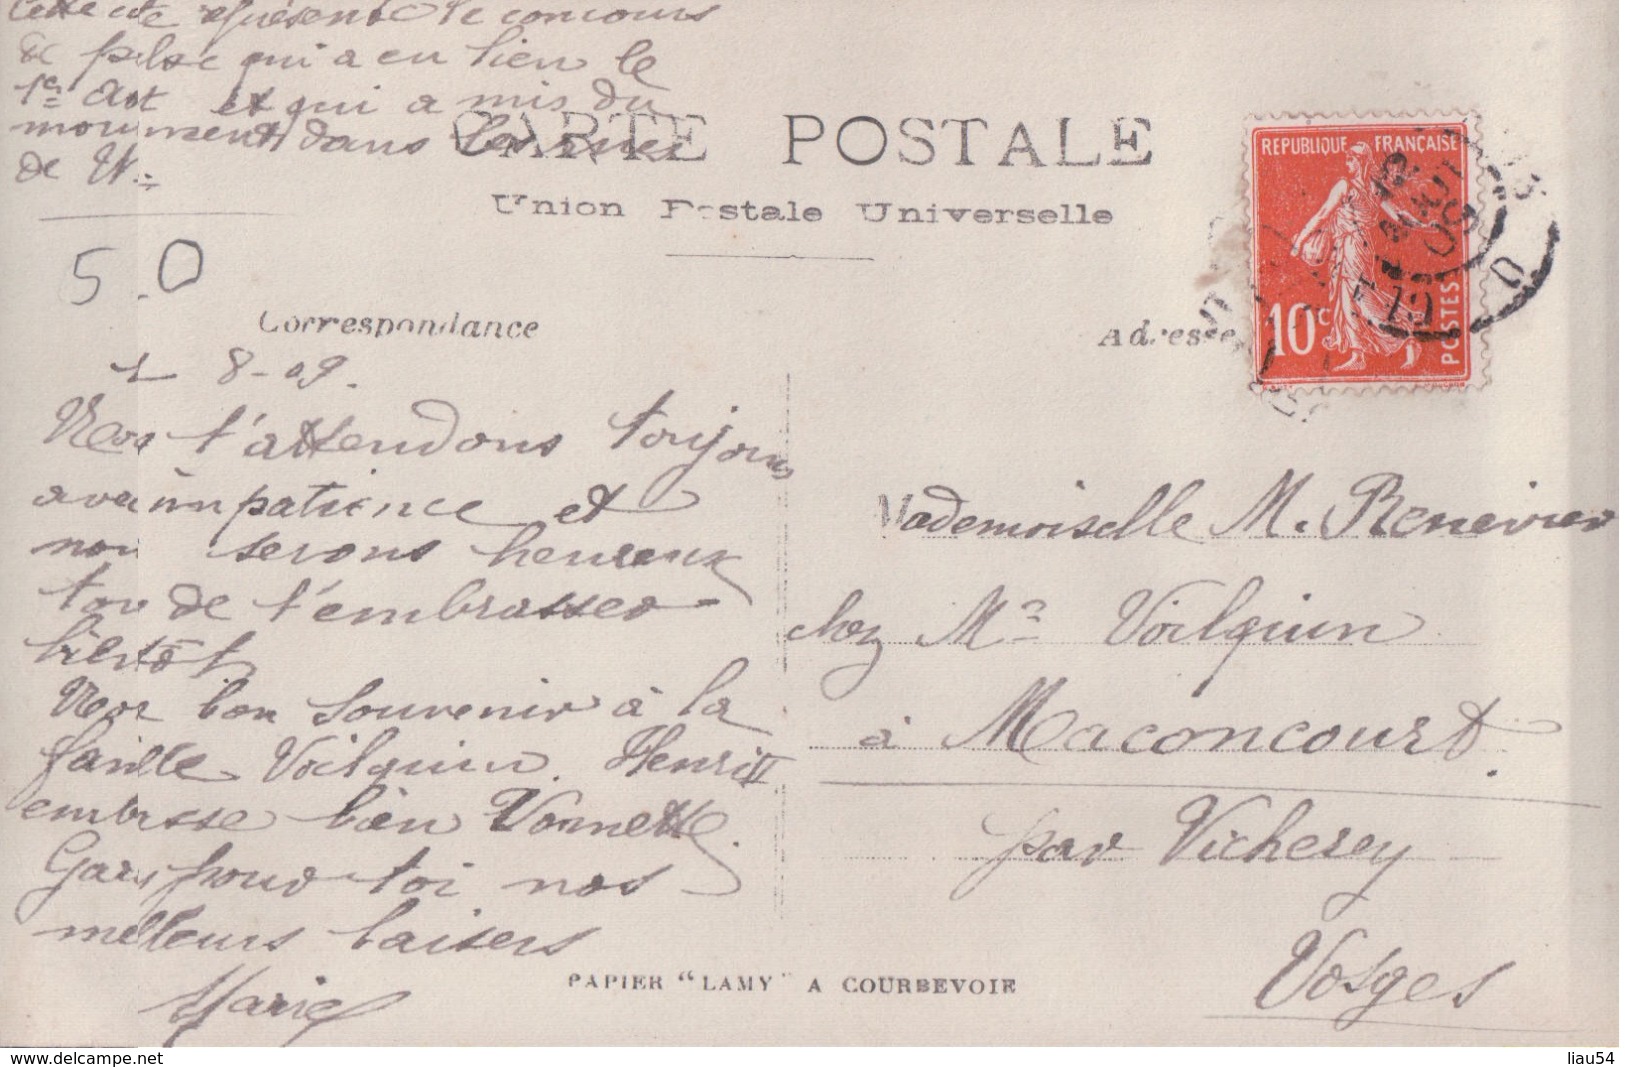 Cette carte représente le concours
de pêche qui a eu lieu le
1er Août et qui a mis du
mouvement dans les rues
de N.
CARTE POSTALE
Union Postale Universelle
REPUBLIQUE FRANÇAISE
10c
POSTES
5.0
Correspondance
Adresse
8-09.
Nous t'attendons toujours
avec impatience et
nous serons heureux
tous de t'embrasser
bientôt
Nos bon souvenir à la
famille Voilquin. Henri
embrasse bien Vonnette.
Gars pour toi nos
meilleurs baisers
Marie
Mademoiselle M. Renevier
chez Mr Voilquin
à Maconcourt.
par Vicherey
Vosges
PAPIER "LAMY" A COURBEVOIE
www.delcampe.net
liau54